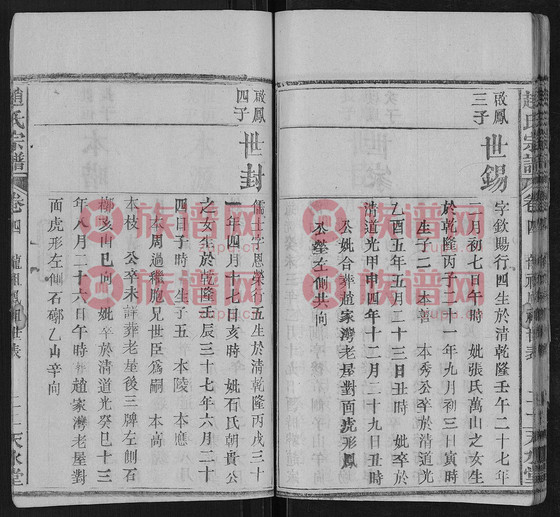 趙氏宗譜
卷四
啟鳳三子
世錫
字欽賜行四生於清乾隆壬午二十七年
二月初七日午時 妣張氏萬山之女生
於乾隆丙子二十一年九月初三日寅時
生子二 本泰 本秀公卒於清道光
乙酉五年五月二十三日丑時 妣卒於
清道光甲申四年十二月二十九日丑時
公妣合葬趙家灣老屋對面虎形鳳
丕塋左側共向
啟鳳四子
世封
儒士字恩榮行五生於清乾隆丙戌三十
一年四月十七日亥時 妣石氏朝貴公
之女生於乾隆壬辰三十七年六月二十
四日子時 生子五 本陵 本應
本周過繼胞兄世臣爲嗣 本高
本枝 公卒未詳葬老屋後三牌左側石
槨亥山巳向 妣卒於清道光癸巳十三
年八月二十六日午時 趙家灣老屋對
面虎形左側石槨乙山辛向
趙氏宗譜
卷四
龍祖鳳祖世表
天水堂
族谱网